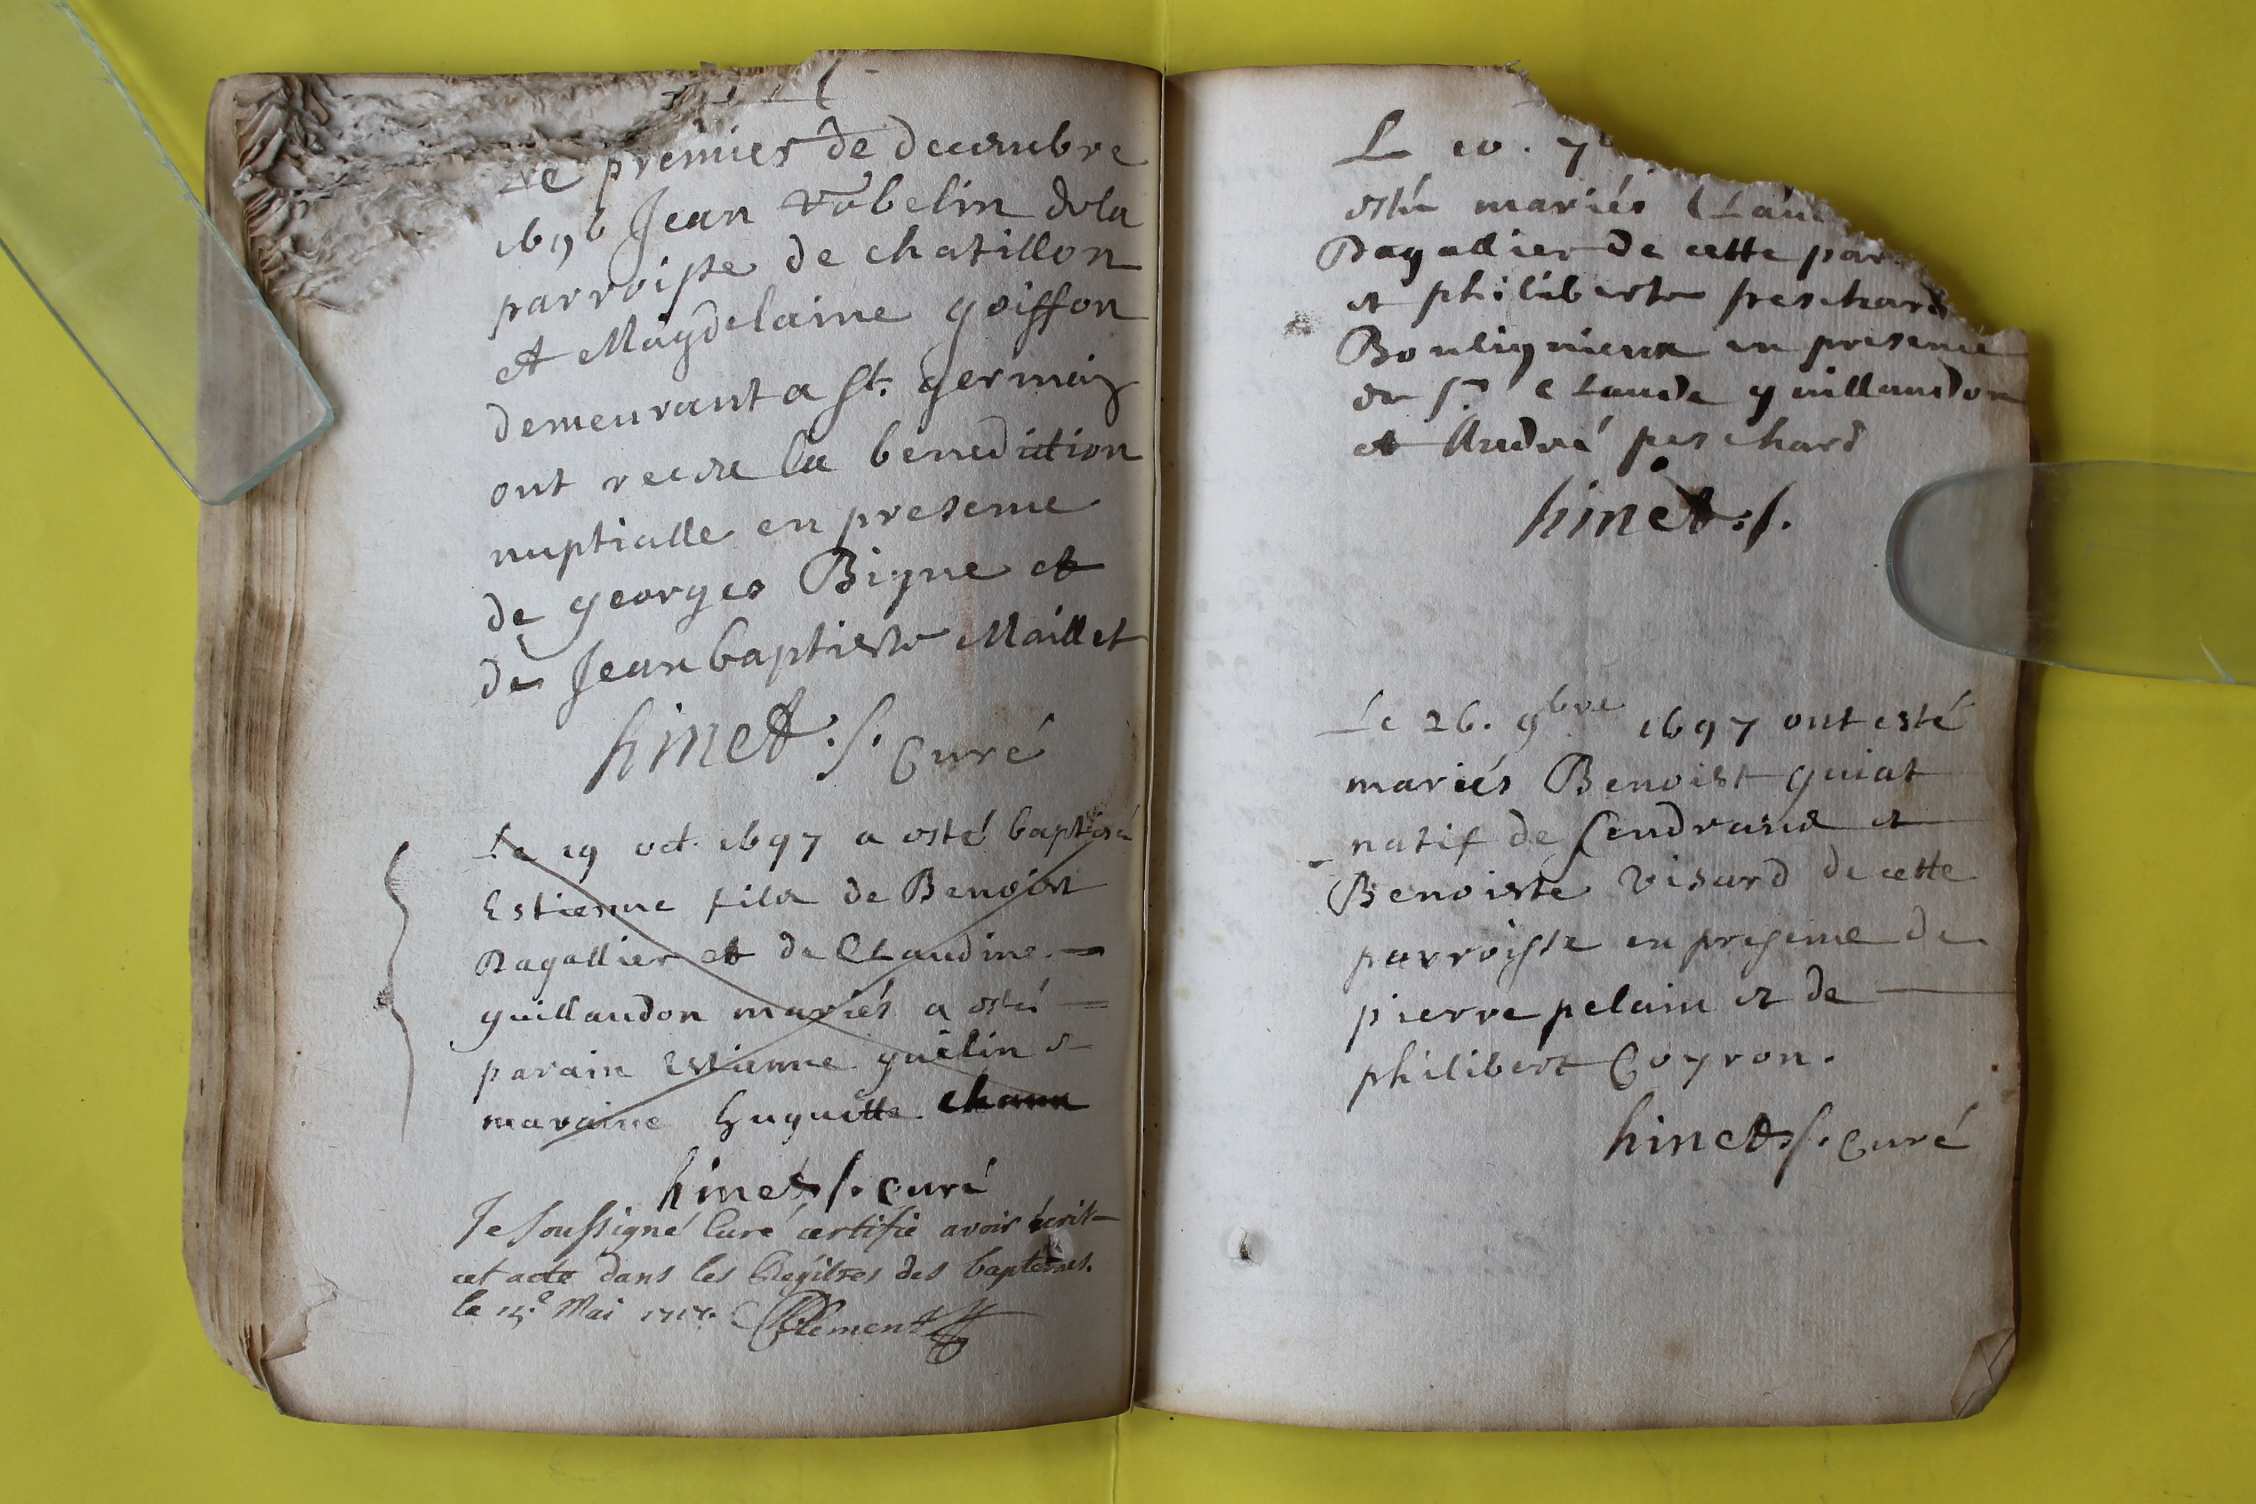 Le premier de decembre
1696 Jean vobelin dela
parroisse de chatillon
et Magdelaine goiffon
demeurant a St. germain
ont receu la benediction
nuptialle en presence
de georges Bigne et
de Jean baptiste Maillet
hinet. s. Curé
Le 19 oct. 1697 a esté baptisé
Estienne fils de Benoist
Ragallier et de Claudine
guillaudon mariés a esté
parain Estienne guelin et
maraine huguette
hinet s. curé
Je soussigné Curé certifie avoir écrit
cet acte dans les Regitres des baptemes.
le Mai Clement
L 10. 7b
esté mariés Clau
Ragallier de cette par
et philiberte preschard
Boulignieux en presence
de Sr. Claude guillaudon
et André peschard
hinet. s.
Le 26. 9bre 1697 ont esté
mariés Benoist guiat
natif de Sendrans et
Benoiste visard de cette
parroisse en presence de
pierre pelain et de
philibert Coyron.
hinet s. Curé